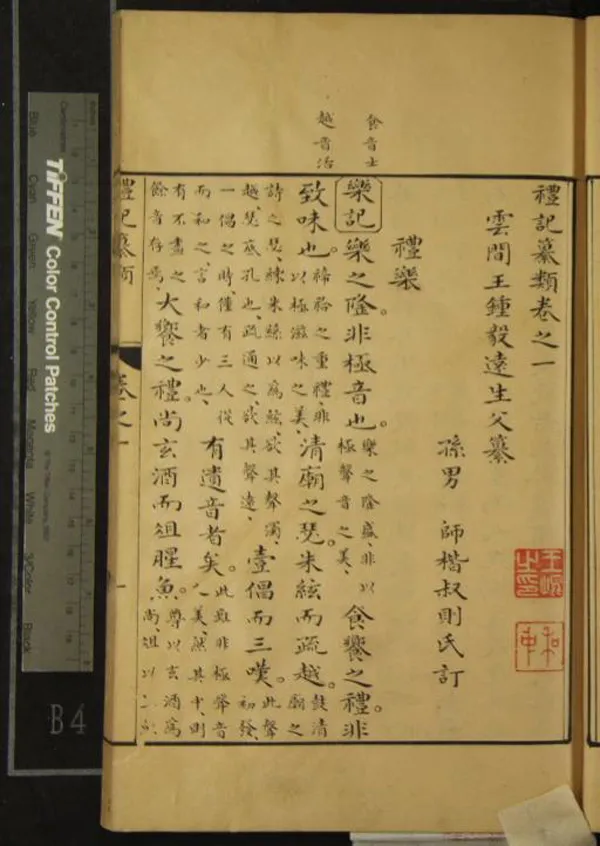 食音士
越音活
禮記纂類卷之一
雲間王鍾毅遠生父纂
孫男 師楷叔則氏訂
禮樂
樂記 樂之隆。非極音也。樂之隆盛、非以極聲音之美、食饗之禮。非
致味也。禘祫之重禮非以極滋味之美、清廟之瑟。朱絃而疏越。鼓清廟之
詩之瑟、練朱絲以為絃、欲其聲濁、越瑟底孔也、疏通之、欲其聲遠、壹倡而三嘆。此聲初發、
一倡之時僅有三人從而和之、言和者少也、有遺音者矣。此雖非極聲音之美、然其中、則
有不盡之餘音存焉、大饗之禮。尚玄酒而俎腥魚。尊以玄酒為尚、俎以
禮記纂類 卷之一 一
TIFFEN Color Control Patches
Centimetres
Inches
Blue
Cyan
Green
Yellow
Red
Magenta
White
3/Color
Black
B4